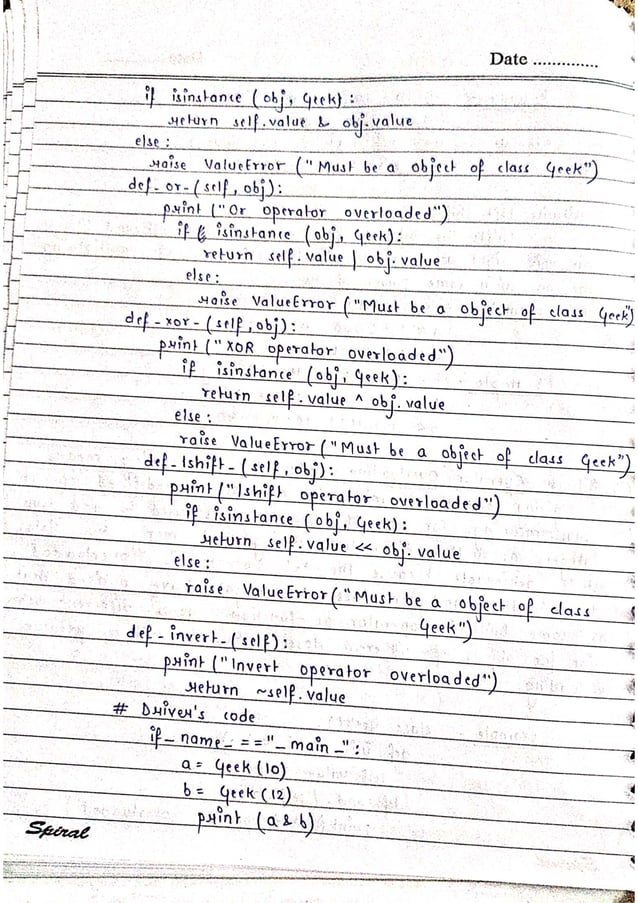 Date ..............
if isinstance (obj, Geek):
return self.value & obj.value
else:
raise ValueError ("Must be a object of class Geek")
def_or_(self, obj):
print ("Or operator overloaded")
if isinstance (obj, Geek):
return self.value | obj.value
else:
raise ValueError ("Must be a object of class Geek")
def_xor_(self, obj):
print ("XOR operator overloaded")
if isinstance (obj, Geek):
return self.value ^ obj.value
else:
raise ValueError ("Must be a object of class Geek")
def_lshift_(self, obj):
print ("lshift operator overloaded")
if isinstance (obj, Geek):
return self.value << obj.value
else:
raise ValueError ("Must be a object of class
Geek")
def_invert_(self):
print ("Invert operator overloaded")
return ~self.value
# Driver's code
if_name_=="_main_":
a = Geek (10)
b = Geek (12)
print (a & b)
Spiral